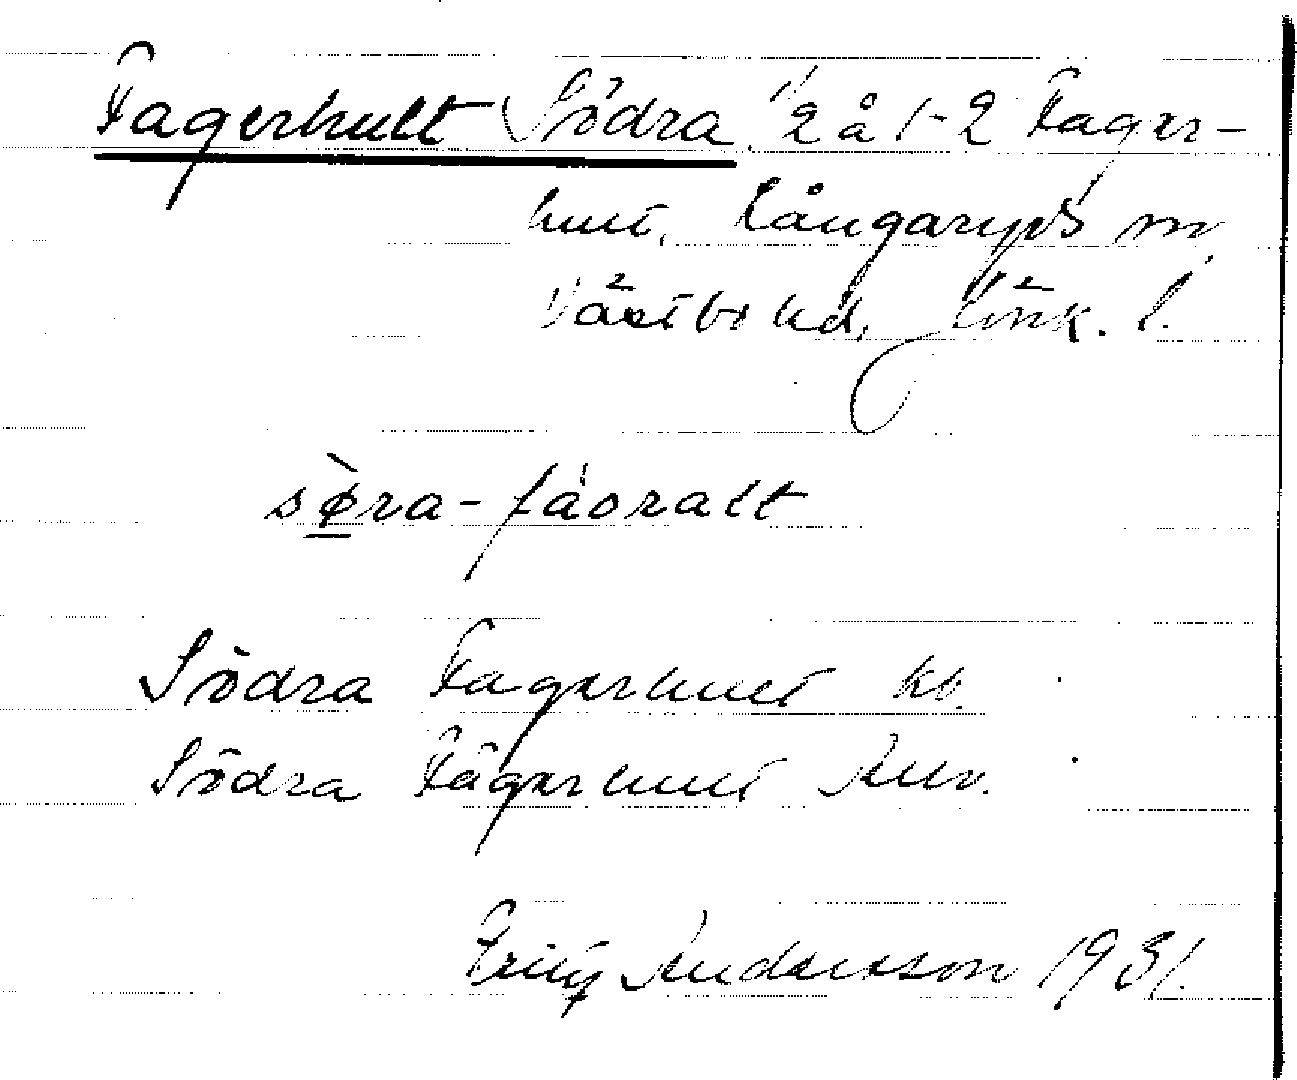 Fagerhult Södra 1/2 à 1-2 Fager-
hult, Kångaryds sn
Västbo hd, Jönk. l.
sø̀ra-fáoralt
Södra Fagerhult kb.
Södra Fagerhult
Fritz Andersson 1931.